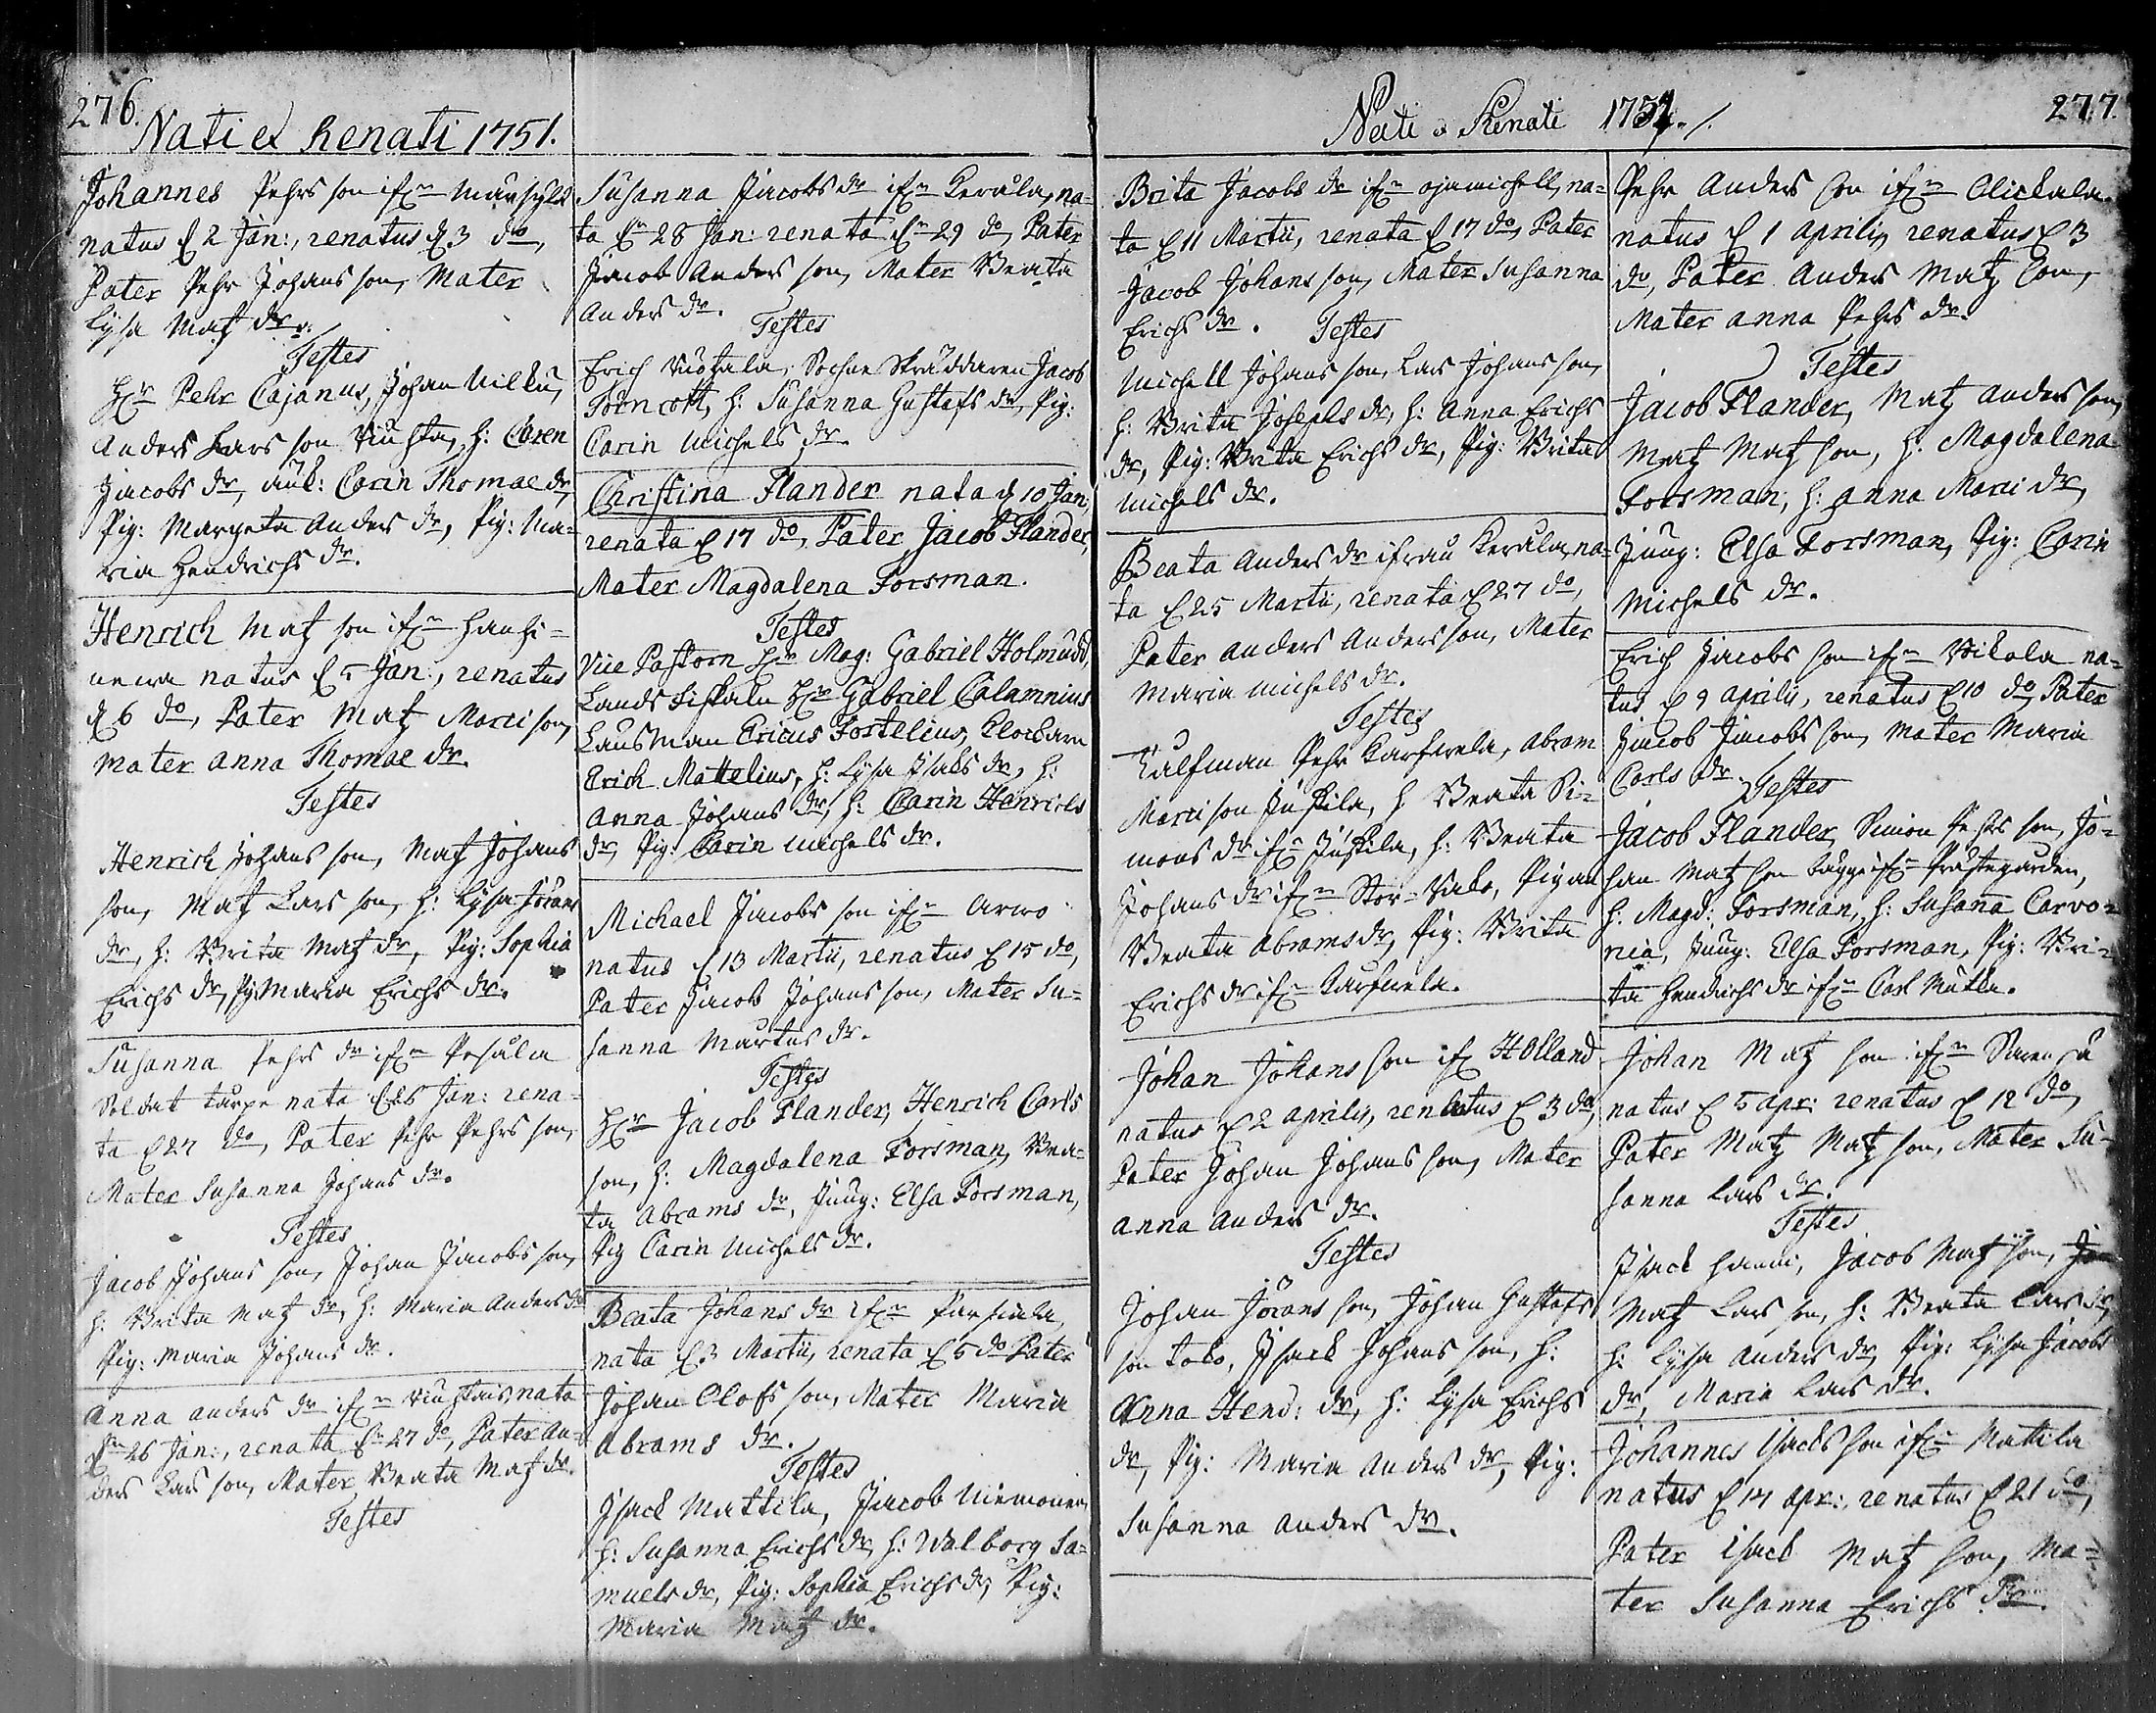 276.
Nati et Renati 1751.
Johannes Pehrs son ifrn
natus d 2 Jan:, renatus d 3 do,
Pater Pehr Johans son, Mater
Lysa Matz dr.
Testes
Hrr Pehr Cajanus, Johan Nilku,
Anders Lars son Viuhta, h: Caren
Jacobs dr, änk: Carin Thomae dr,
Pig: Margeta Anders dr, Pig: Ma=
ria Hendrichs dr.
Henrich Matz son ifrn Hanhi=
newa natus d 5 Jan:, renatus
d 6 do, Pater Matz Marci son,
Mater Anna Thomae dr.
Testes
Henrich Johans son, Matz Johans
son, Matz Lars son, h: Lysa Jörans
dr, h: Brita Matz dr, Pig: Sophia
Erichs dr, Pig: Maria Erichs dr.
Susanna Pehrs dr ifrn Pesula
Soldat Turpe nata d 26 Jan: rena=
ta d 27 do, Pater Pehr Pehrs son,
Mater Susanna Johans dr.
Testes
Jacob Johans son, Johan Jacobs son,
h: Brita Matz dr, h: Maria Anders dr
Pig: Maria Johans dr.
Anna Anders dr ifrn nata
dn 26 Jan:, renata dn 27 do, Pater An=
ders Lars son, Mater Beata Matz dr.
Testes
Susanna Jacobs dr ifrn Kerula, na=
ta dn 28 Jan: renata dn 29 do, Pater
Jacob Anders son, Mater Beata
Anders dr.
Testes
Erich Sochne Skräddaren Jacob
Törncott, h: Susanna Gustafs dr, Pig:
Carin Michels dr.
Christina Flander nata d 10 Jan;
renata d 17 do, Pater Jacob Flander,
Mater Magdalena Forsman.
Testes
Vice Pastorn Hrr Mag: Gabriel Holmudd,
Lands Fiskaln Hrr Gabriel Calamnius
Länsman Ericus Fortelius, Clockarn
Erich Mattelius, h: Lysa Isaks dr, h:
Anna Johans dr, h: Carin Henrichs
dr, Pig: Carin Michels dr.
Michael Jacobs son ifrn Arwo
natus d 13 Martii, renatus d 15 do,
Pater Jacob Johans son, Mater Su=
sanna Martus dr.
Testes
Hrr Jacob Flander, Henrich Carls
son, h: Magdalena Forsman, Bea=
ta Abrams dr, Jung: Elsa Forsman,
Pig Carin Michels dr.
Beata Johans dr ifrn
nata d 3 Martii, renata d 5 do Pater
Johan Olofs son, Mater Maria
Abrams dr.
Testes
Isack Mattila, Jacob Niemonen,
h: Susanna Erichs dr, h: Walborg Sa=
muels dr, Pig: Sophia Erichs dr, Pig:
Maria Matz dr.
Nati & Renati 1751./.
277.
Brita Jacobs dr ifrn ojamichell, na=
ta d 11 Martii, renata d 17 do, Pater
Jacob Johans son, Mater Susanna
Erichs dr. Testes
Michell Johans son, Lars Johans son,
h: Brita Josephs dr, h: Anna Erichs
dr, Pig: Brita Erichs dr, Pig: Brita
Michels dr.
Beata Anders dr ifrån Kerula, na=
ta d 25 Martii, renata d 27 do,
Pater Anders Anders son, Mater
Maria Michels dr.
Testes
Pehr Karhuela, Abram
Marci son Juskila, h Beata Si=
mons dr ifrn Juskila, h: Beata
Johans dr ifrn Stor=Sale, Pigan
Beata Abrams dr, Pig: Brita
Erichs dr ifrn Karhuela.
Johan Johans son ifr Hölland
natus d 2 aprilis, renatus d 3 do,
Pater Johan Johans son, Mater
Anna Anders dr.
Testes
Johan Jörans son, Johan Gustafs
son toko, Isack Johans son, h:
Anna Hend: dr, h: Lysa Erichs
dr, Pig: Maria Anders dr, Pig:
Susanna Anders dr.
Pehr Anders son ifrn Alickala
natus d 1 aprilis renatus d 3
do, Pater Anders Matz son,
Mater Anna Pehrs dr.
Testes
Jacob Flander, Matz Anders son,
Matz Matz son, h: Magdalena
Forsman, h: Anna Marci dr,
Jung: Elsa Forsman, Pig: Carin
Michels dr.
Erich Jacobs son ifrn Wikola na=
tus d 9 aprilis, renatus d 10 do, Pater
Jacob Jacobs son, Mater Maria
Carls dr. Testes
Jacob Flander, Simon Pehrs son, Jo=
han Matz son ifrn Prästegården,
h: Magd: Forsman, h: Susana Carvo=
nia, Jung: Elsa Forsman, Pig: Bri=
ta Hendrichs dr ifrn Carl Mutka.
Johan Matz son ifrn
natus d 5 apr: renatus d 12 do,
Pater Matz Matz son, Mater Su=
sanna Lars dr.
Testes
Isack Hanni, Jacob Matz son,
Matz Lars son, h: Beata Lars dr,
h: Lysa Anders dr, Pig: Lysa Jacobs
dr, Maria Lars dr.
Johannes Isacks son ifrn Matila
natus d 14 apr:, renatus d 21 do,
Pater Isack Matz son, Ma=
ter Susanna Erichs dr.